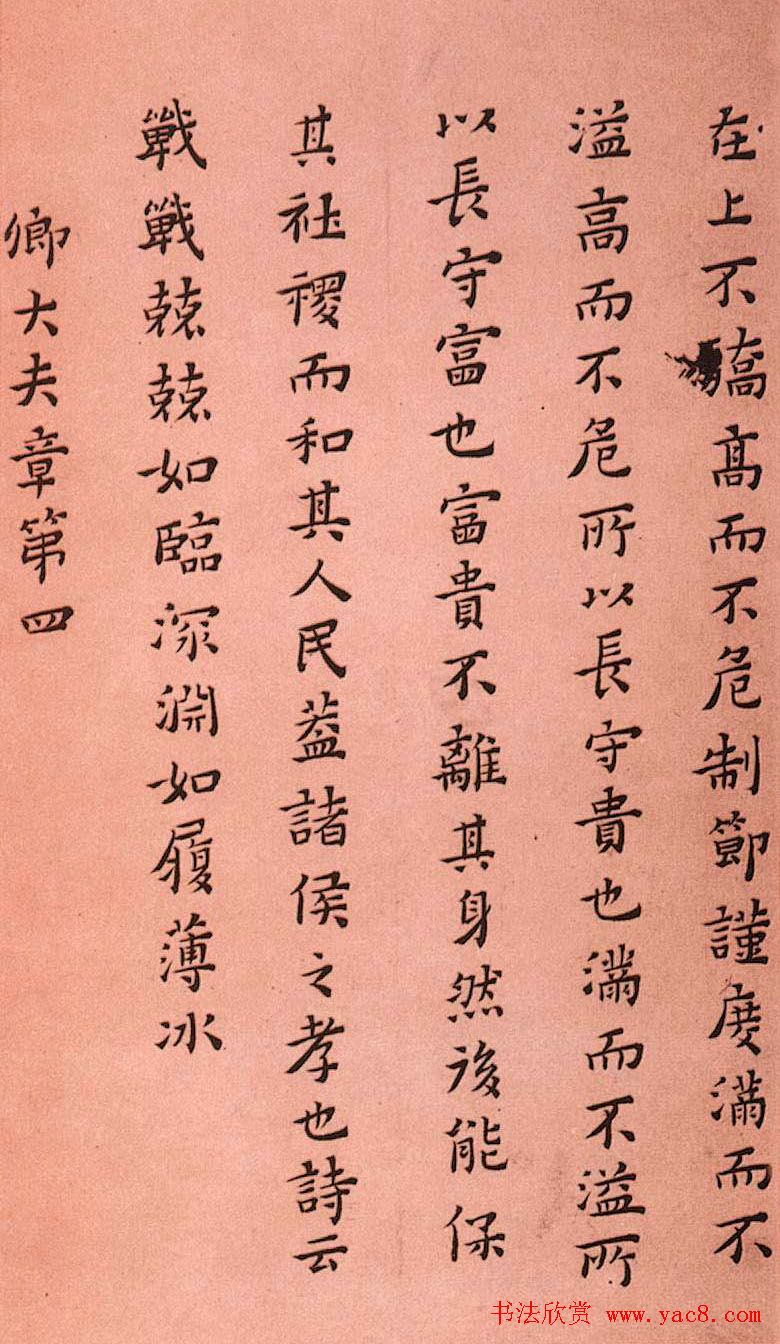 在上不驕高而不危制節謹度滿而不
溢高而不危所以長守貴也滿而不溢所
以長守富也富貴不離其身然後能保
其社稷而和其人民蓋諸侯之孝也詩云
戰戰兢兢如臨深淵如履薄冰
卿大夫章第四
书法欣赏 www.yac8.com